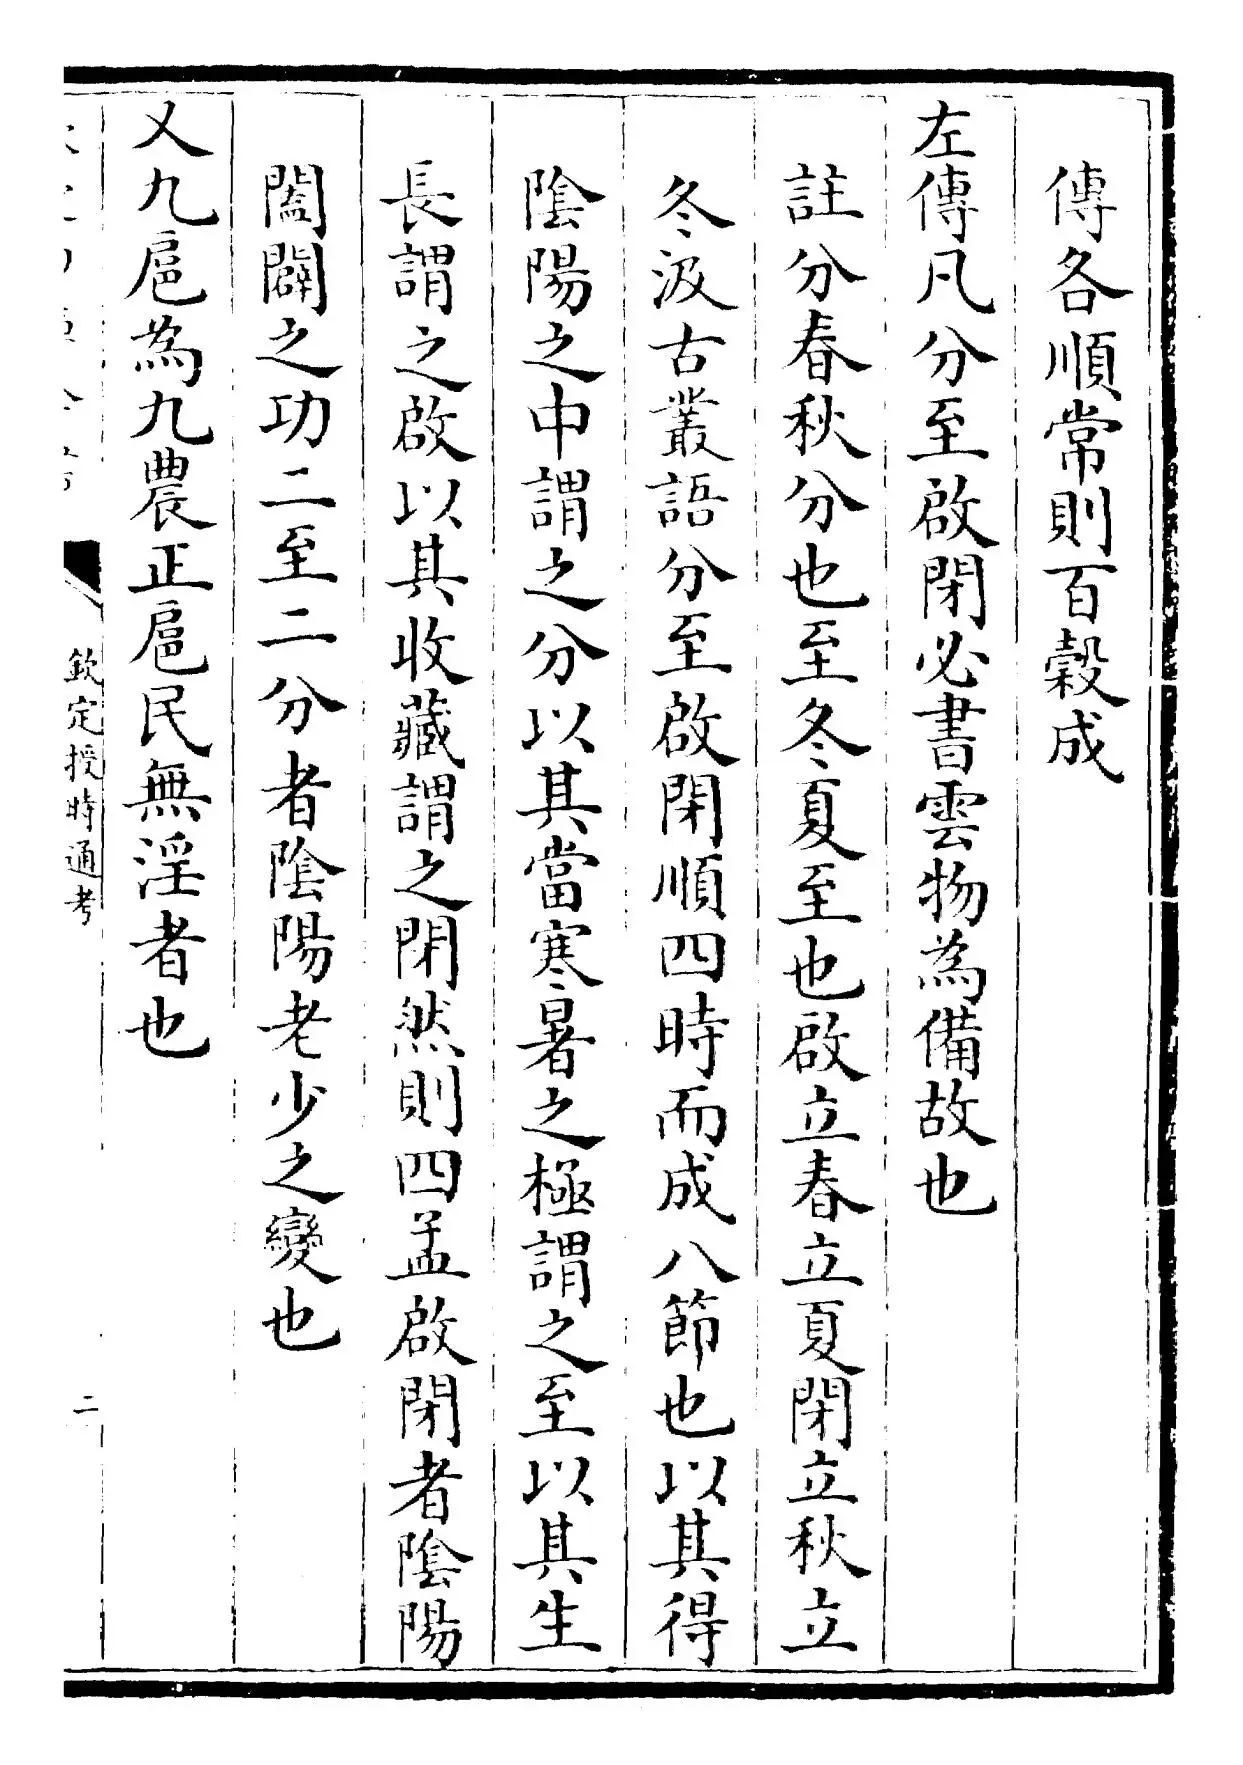 傳各順常則百穀成
左傳凡分至啟閉必書雲物為備故也
註分春秋分也至冬夏至也啟立春立夏閉立秋立
冬汲古叢語分至啟閉順四時而成八節也以其得
陰陽之中謂之分以其當寒暑之極謂之至以其生
長謂之啟以其收藏謂之閉然則四孟啟閉者陰陽
闔闢之功二至二分者陰陽老少之變也
又九扈為九農正扈民無淫者也
欽定授時通考
二